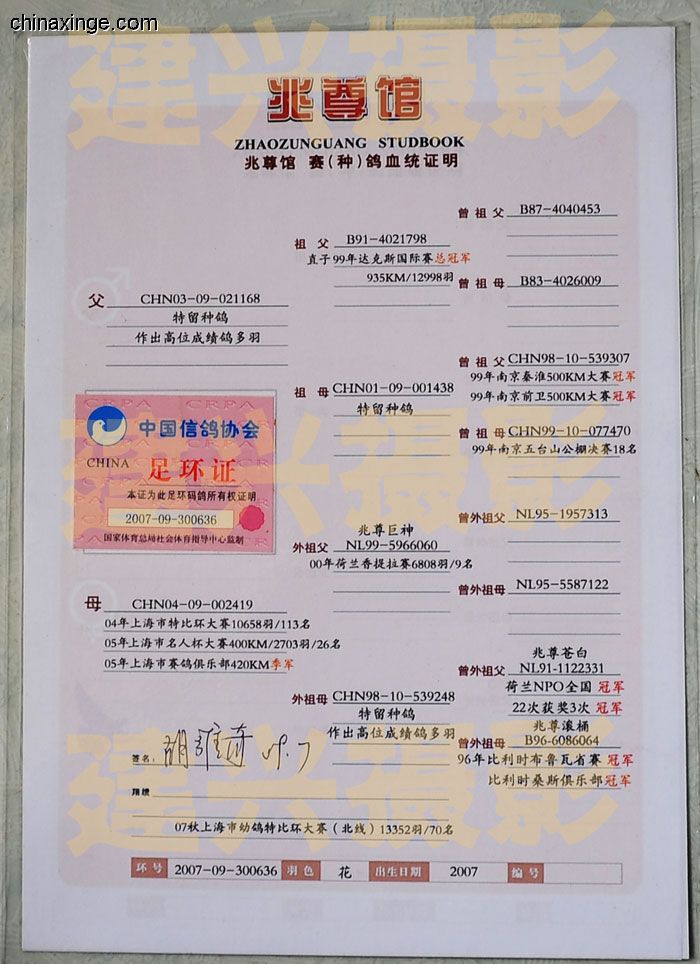 chinaxinge.com
建兴摄影
兆尊馆
ZHAOZUNGUANG STUDBOOK
兆尊馆 赛(种)鸽血统证明
曾祖父 B87-4040453
祖父 B91-4021798
直子99年达克斯国际赛总冠军
935KM/12998羽
曾祖母 B83-4026009
父 CHN03-09-021168
特留种鸽
作出高位成绩鸽多羽
曾祖父 CHN98-10-539307
99年南京秦淮500KM大赛冠军
99年南京前卫500KM大赛冠军
祖母 CHN01-09-001438
特留种鸽
曾祖母 CHN99-10-077470
99年南京五台山公棚决赛18名
CRPA CRPA CRPA
中国信鸽协会
CHINA 足环证
本证为此足环码鸽所有权证明
2007-09-300636
国家体育总局社会体育指导中心监制
建兴摄影
曾外祖父 NL95-1957313
兆尊巨神
外祖父 NL99-5966060
00年荷兰香提拉赛6808羽/9名
曾外祖母 NL95-5587122
母 CHN04-09-002419
04年上海市特比环大赛10658羽/113名
05年上海市名人杯大赛400KM/2703羽/26名
05年上海市赛鸽俱乐部420KM季军
兆尊苍白
曾外祖父 NL91-1122331
荷兰NPO全国 冠军
22次获奖3次 冠军
外祖母 CHN98-10-539248
特留种鸽
作出高位成绩鸽多羽
兆尊滚桶
曾外祖母 B96-6086064
96年比利时布鲁瓦省赛 冠军
比利时桑斯俱乐部冠军
建兴摄影
签名:
翔绩
07秋上海市幼鸽特比环大赛(北线)13352羽/70名
环号 2007-09-300636 羽色 花 出生日期 2007 编号